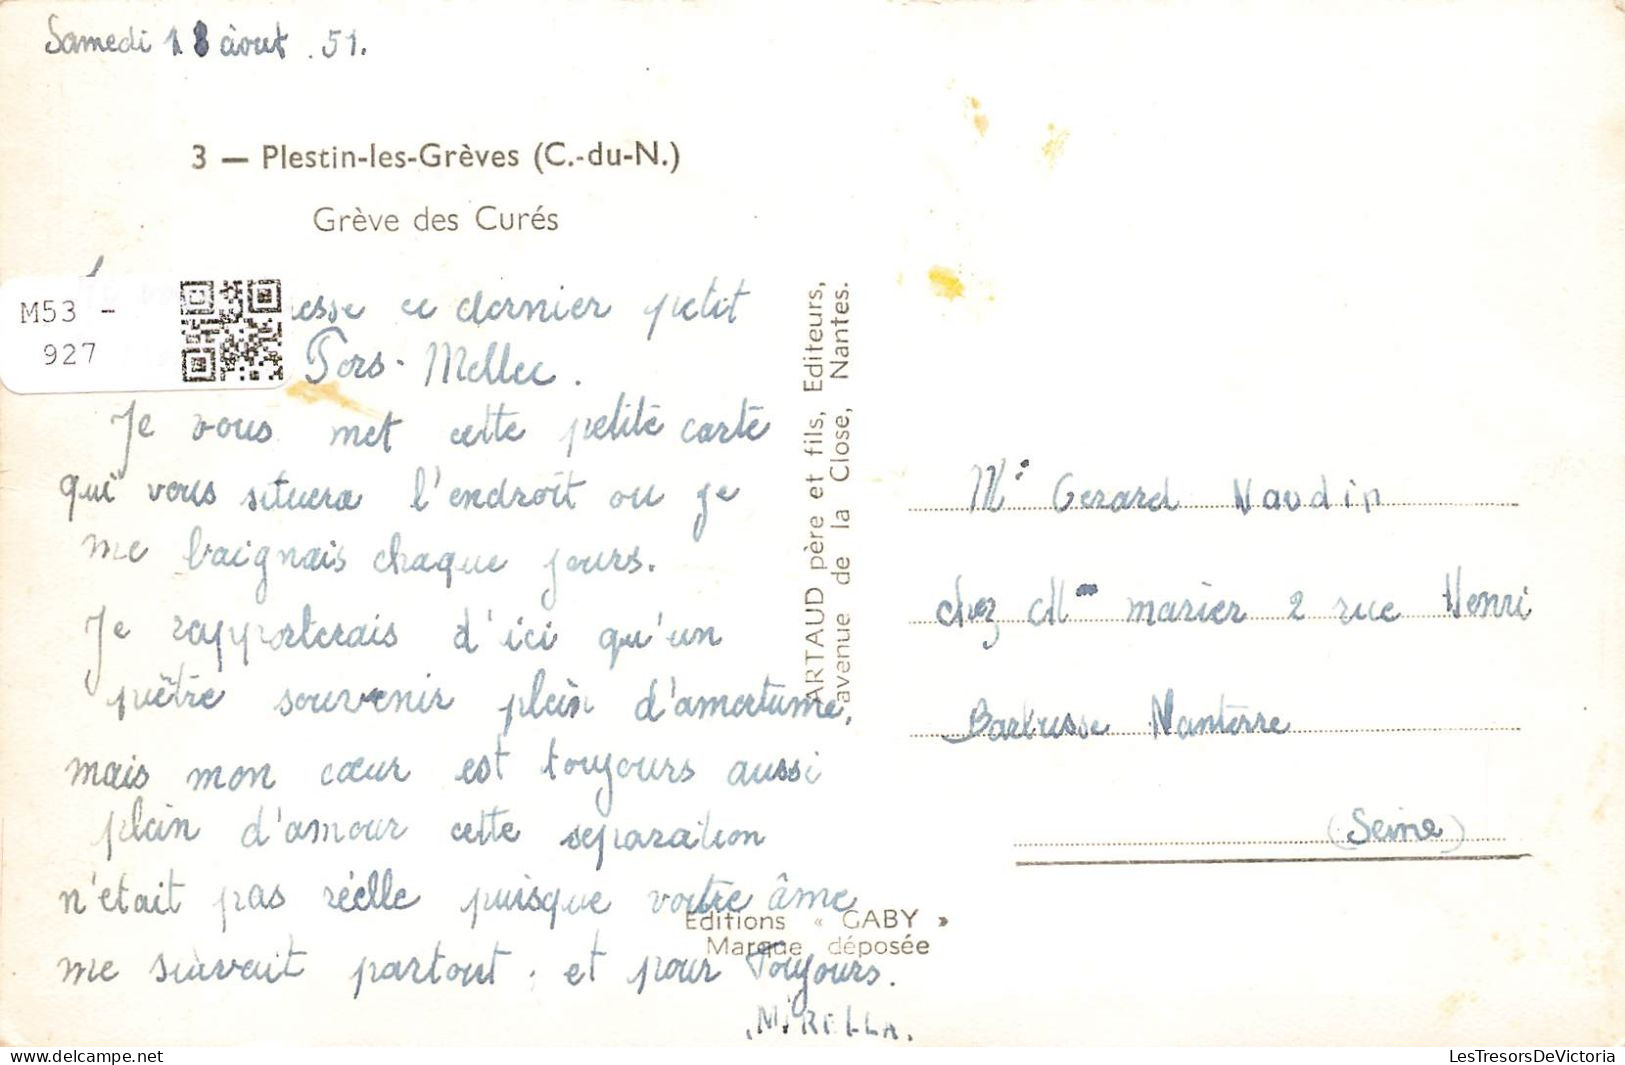 Samedi 18 àout . 51.
3 — Plestin-les-Grèves (C.-du-N.)
Grève des Curés
M53 -
927
esse ce dernier petit
Pors-Mellec.
Je vous met cette petite carte
qui vous situera l'endroit ou je
me baignais chaque jours.
Je rapporterais d'ici qu'un
pêtre souvenir plein d'amertume,
mais mon cœur est toujours aussi
plein d'amour cette separation
n'etait pas réelle puisque votre âme
me suivait partout . et pour Toujours.
MIRELLA.
ARTAUD père et fils, Editeurs,
avenue de la Close, Nantes.
Editions « GABY »
Marque déposée
Mr Gerard Naudin
chez Mme marier 2 rue Henri
Barbusse Nanterre
(Seine)
LesTresorsDeVictoria
https://www.delcampe.net